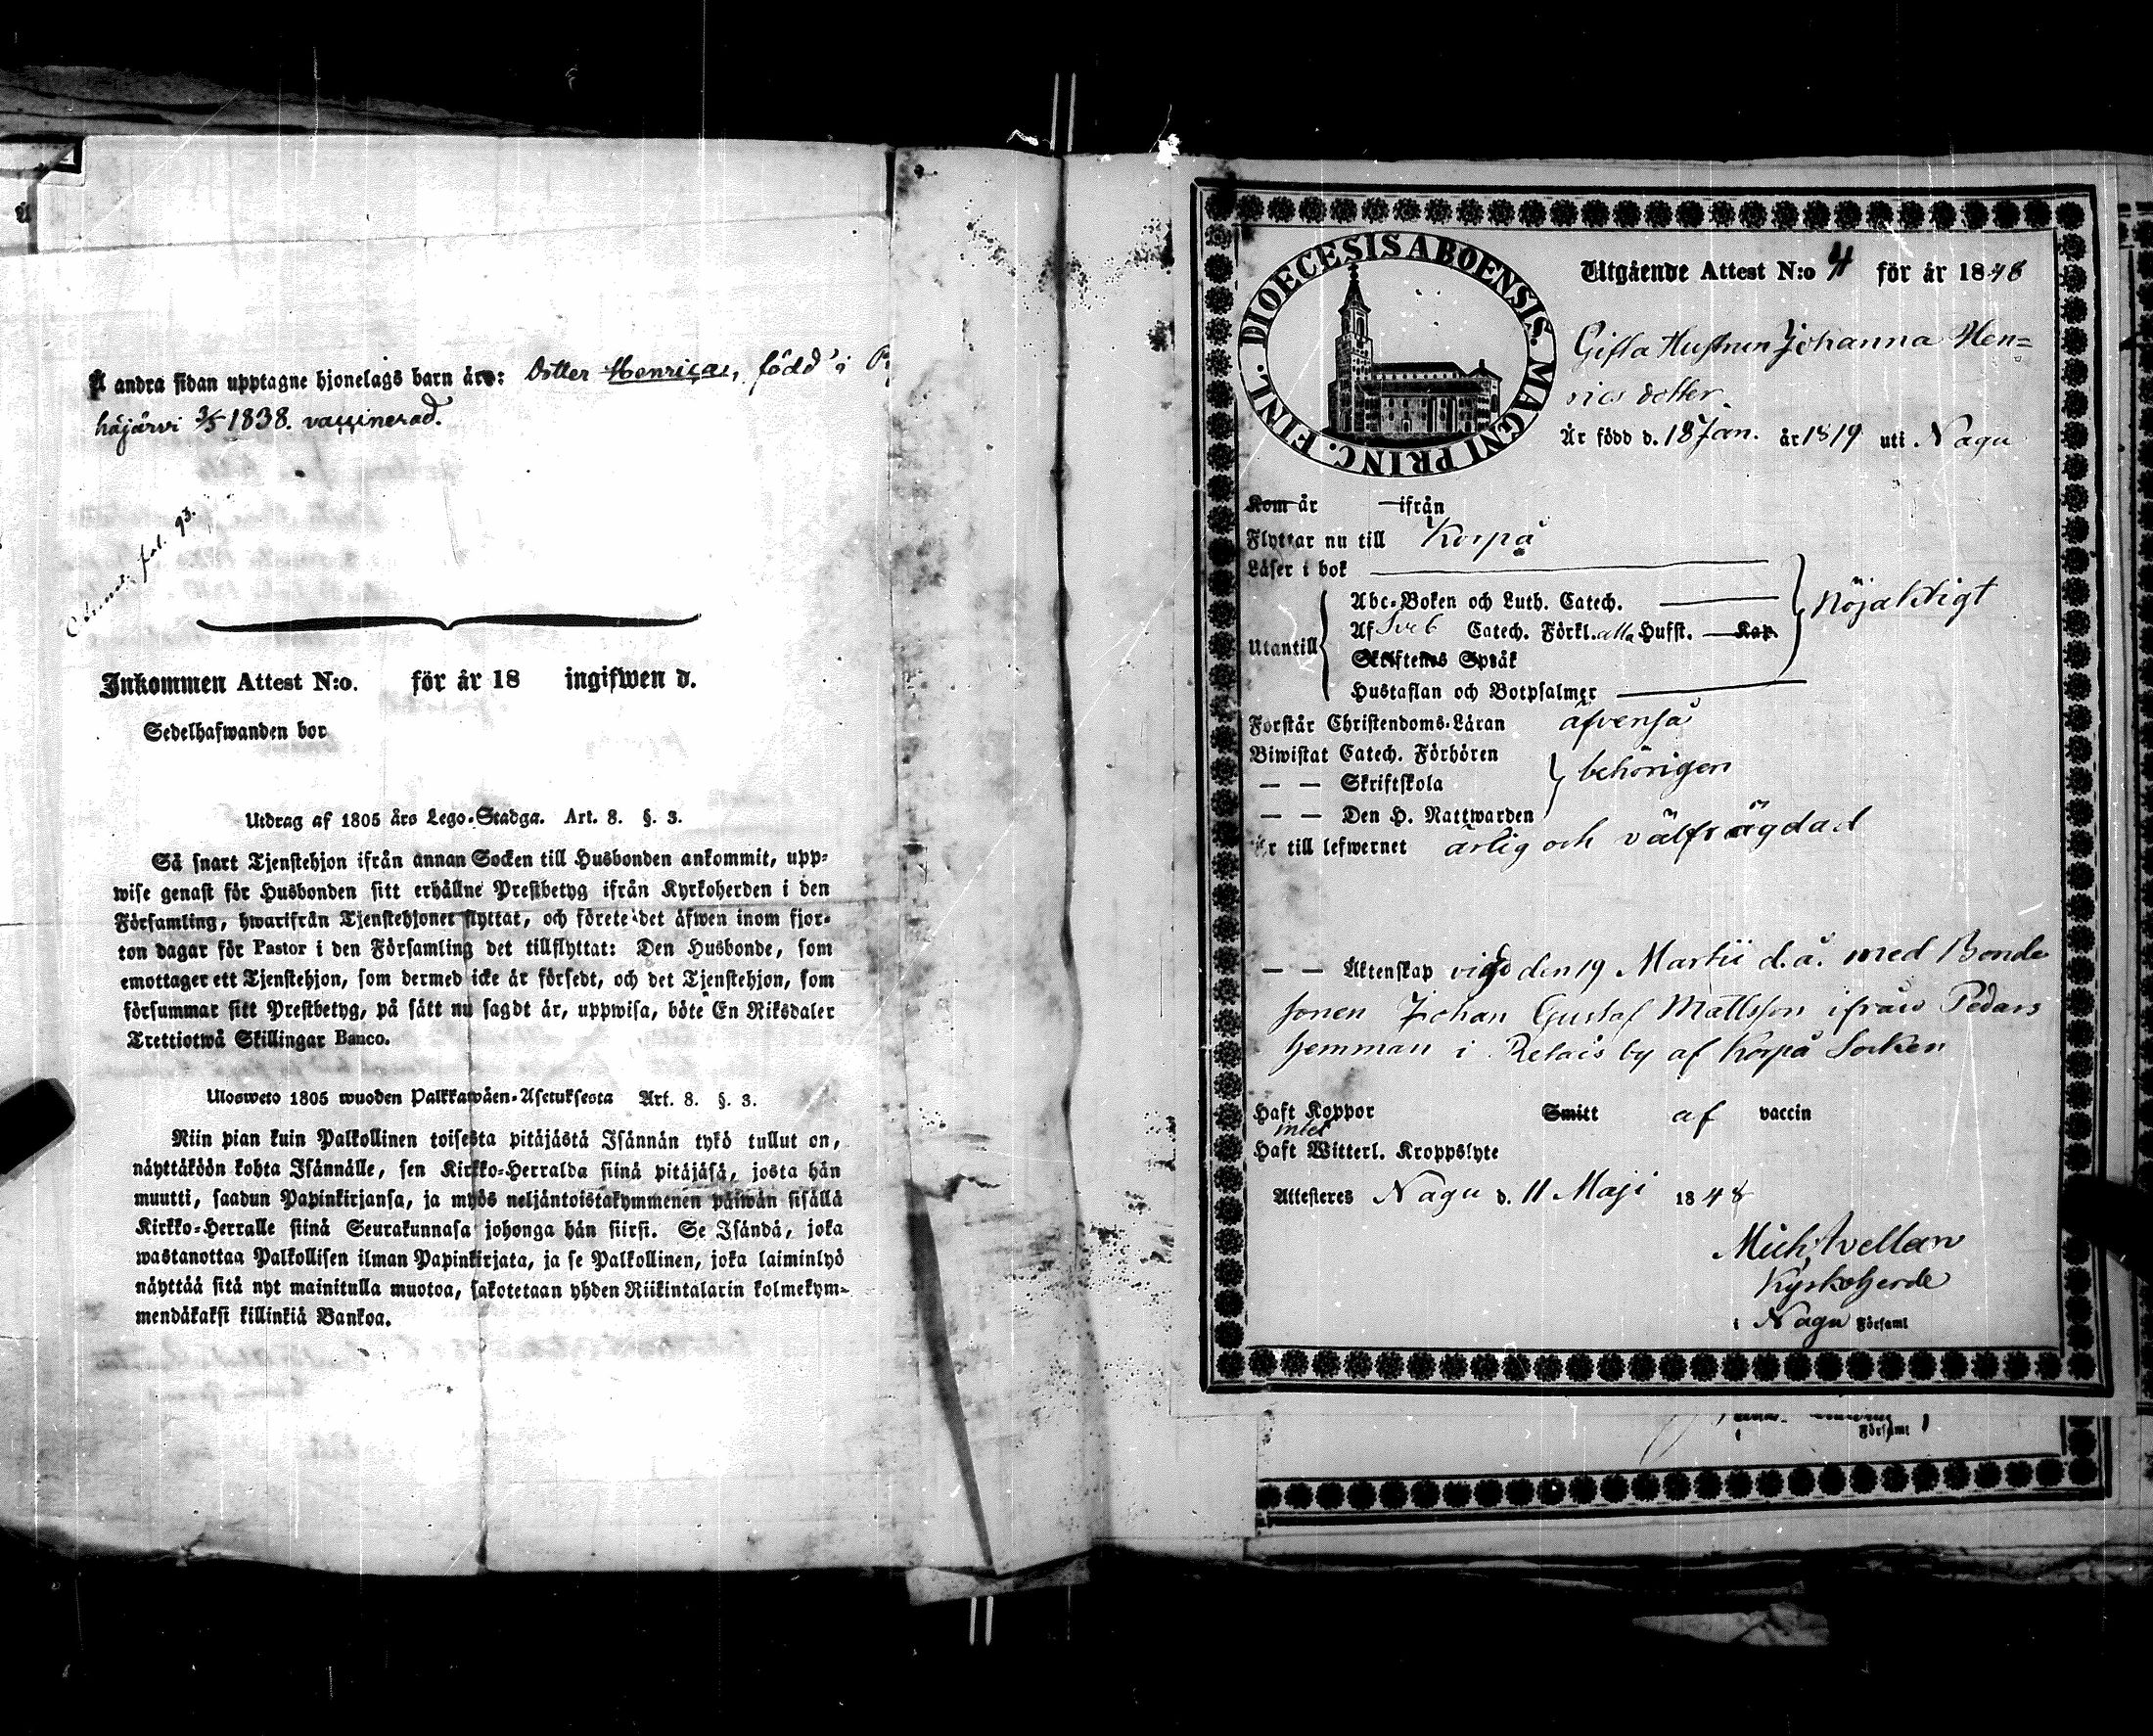 A andra sidan upptagne hjonelags barn äro: Dotter Henrica, född i P
häjärvi 3/5 1838. vaccinerad.
fol. 93.
Inkommen Attest N:o. för år 18 ingifwen d.
Sedelhafwanden bor
Utdrag af 1805 års Lego-Stadga. Art. 8. §. 3.
Så snart Tjenstehjon ifrån annan Socken till Husbonden ankommit, upp-
wise genast för Husbonden sitt erhållne Prestbetyg ifrån Kyrkoherden i den
Församling, hwarifrån Tjenstehjonet flyttat, och förete det äfwen inom fjor-
ton dagar för Pastor i den Församling det tillflyttat: Den Husbonde, som
emottager ett Tjenstehjon, som dermed icke är försedt, och det Tjenstehjon, som
försummar sitt Prestbetyg, på sätt nu sagdt är, uppwisa, böte En Riksdaler
Trettiotwå Skillingar Banco.
Ulosweto 1805 wuoden Palkkawäen-Asetuksesta Art. 8. §. 3.
Niin pian kuin Palkollinen toisesta pitäjästä Isännän tykö tullut on,
näyttäköön kohta Isännälle, sen Kirkko-Herralda siinä pitäjäsä, josta hän
muutti, saadun Papinkirjansa, ja myös neljäntoistakymmenen päiwän sisällä
Kirkko-Herralle siinä Seurakunnasa johonga hän siirsi. Se Isändä, joka
wastanottaa Palkollisen ilman Papinkirjata, ja se Palkollinen, joka laiminlyö
näyttää sitä nyt mainitulla muotoa, sakotetaan yhden Riikintalarin kolmekym-
mendäkaksi killinkiä Bankoa.
DIOECESIS ABOENSIS. MAGNI PRINC. FINL.
Utgående Attest N:o 4 för år 1848
Gifta Hustrun Johanna Hen=
rics dotter.
Är född d. 18 Jan. år 1819 uti Nagu
Kom år ifrån
Flyttar nu till Korpå
Läser i bok
Utantill
Abc-Boken och Luth. Catech.
Af Sveb Catech. Förkl. alla Hufst. Kap.
Skriftenes Språk
Hustaflan och Botpsalmer
Nöjaktigt
Forstår Christendoms-Läran äfvenså
Biwistat Catech. Förhören
— — Skriftskola
— — Den H. Nattwarden
behörigen
Är till lefwernet ärlig och välfrägdad
— — Äktenskap vigd den 19 Martii d.å. med Bonde
sonen Johan Gustaf Mattsson ifrån Pedars
hemman i Relais by af Korpå Socken
Haft Koppor Smitt af vaccin
intet
Haft Witterl. Kroppslyte
Attesteres Nagu d. 11 Maji 1848
Mich Avellan
Kyrkoherde
i Nagu Församl
Församl